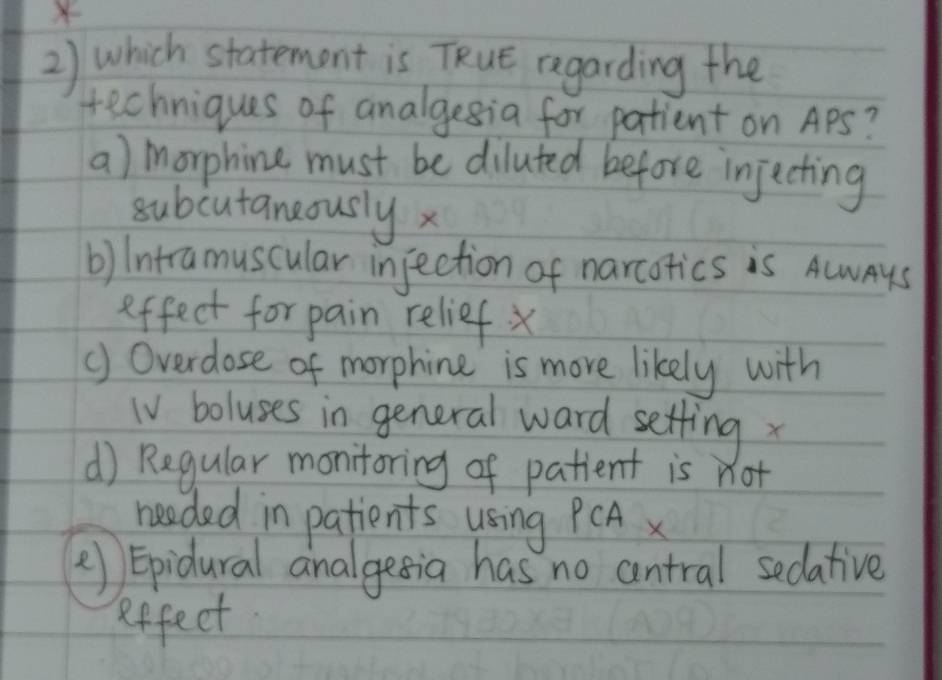 2) Which statement is TRUE regarding the
techniques of analgesia for patient on APS?
a) Morphine must be diluted before injecting
subcutaneously x
b) Intramuscular injection of narcotics is ALWAYS
effect for pain relief x
c) Overdose of morphine is more likely with
IV boluses in general ward setting x
d) Regular monitoring of patient is not
needed in patients using PCA x
e) Epidural analgesia has no central sedative
effect.